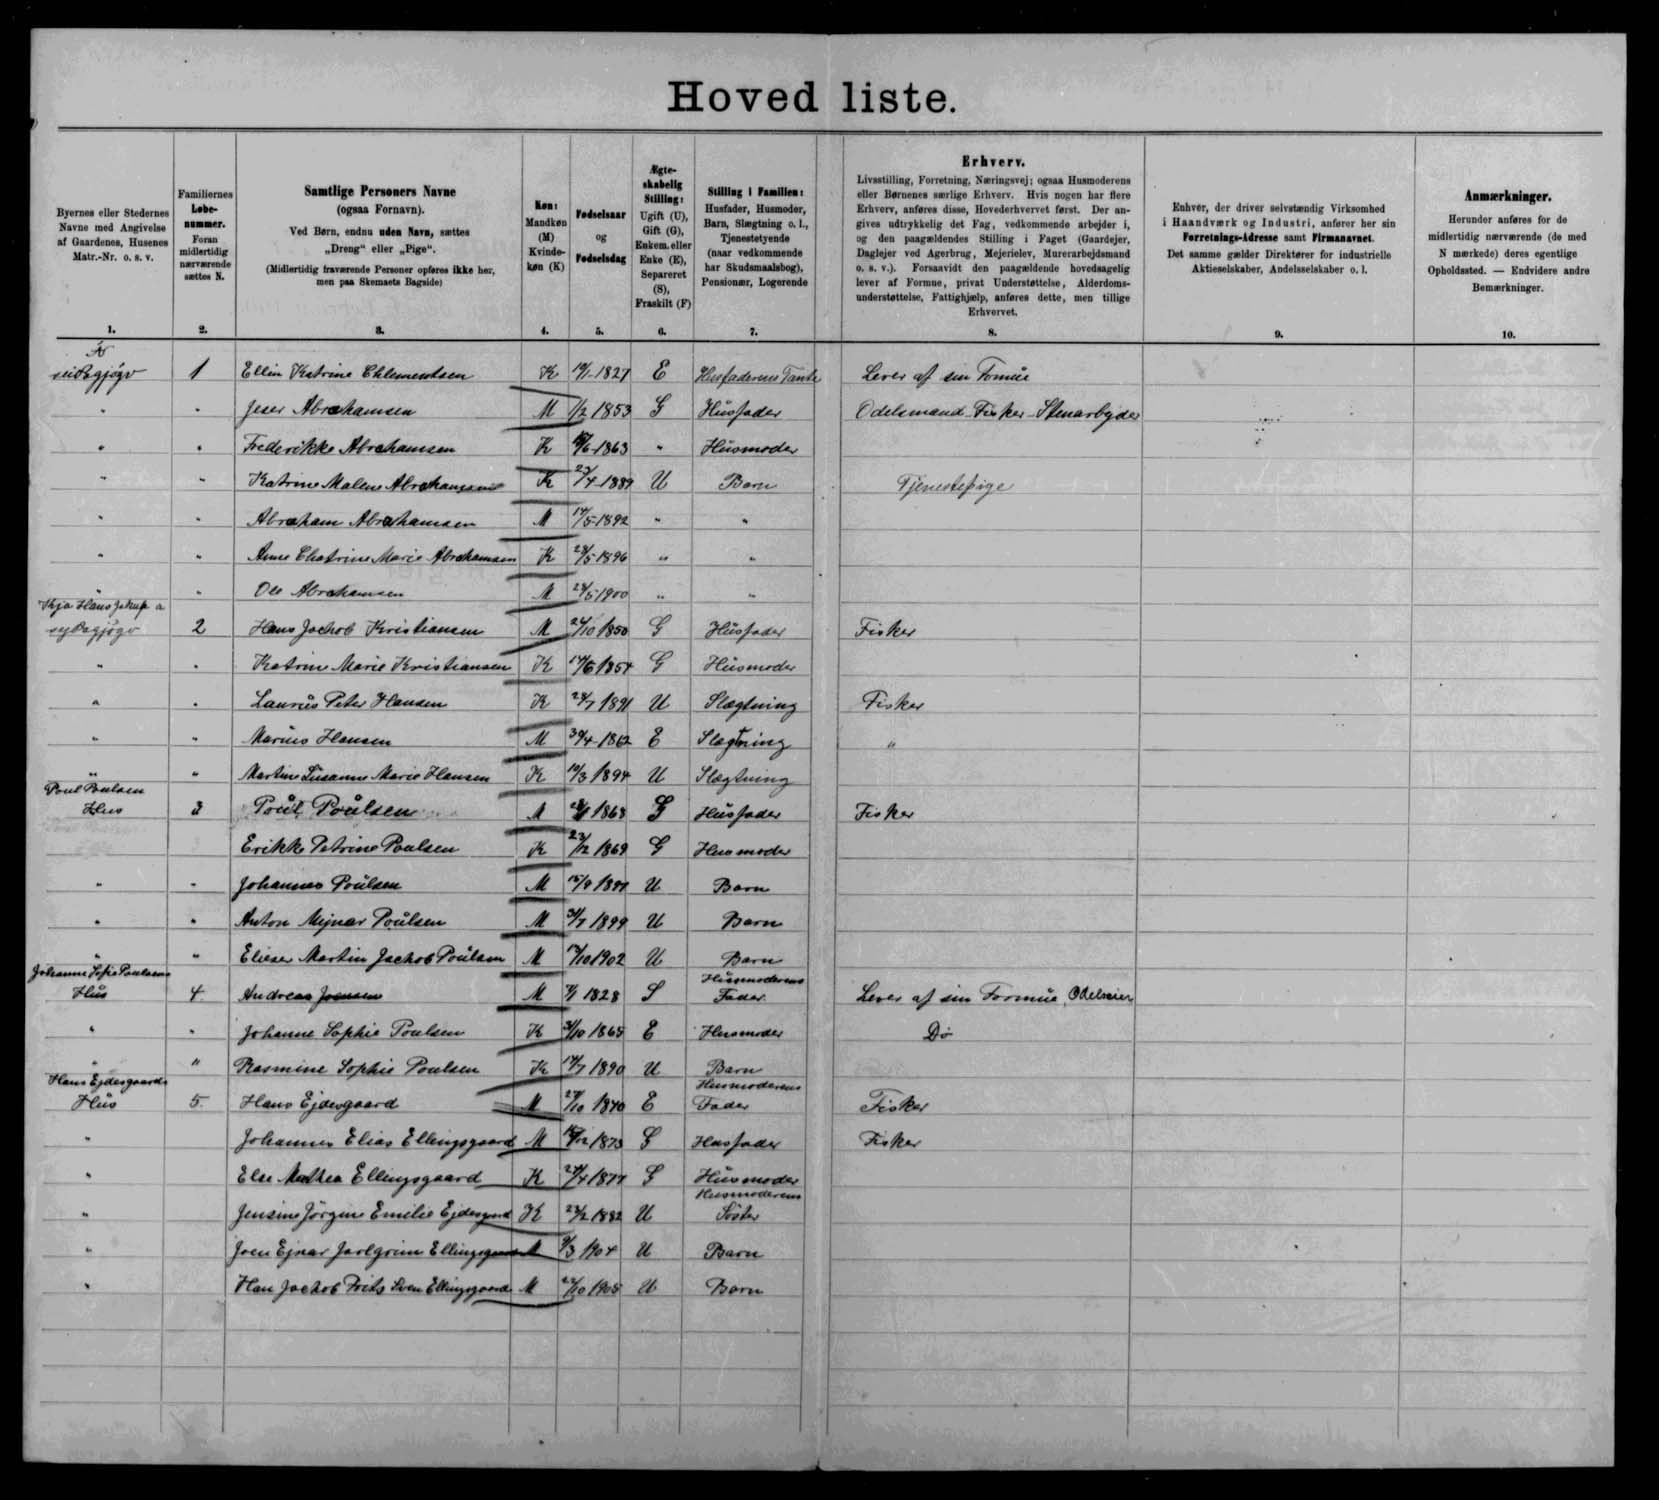 Hoved liste.
Byernes eller Stedernes Navne med Angivelse af Gaardenes, Husenes Matr.-Nr. o. s. v.
Familiernes Løbenummer. Foran midlertidig nærværende sættes N.
Samtlige Personers Navne
(ogsaa Fornavn).
Ved Børn, endnu uden Navn, sættes
„Dreng“ eller „Pige“.
(Midlertidig fraværende Personer opføres ikke her,
men paa Skemaets Bagside)
Køn:
Mandkøn
(M)
Kvinde-
køn (K)
Fødselsaar
og
Fødselsdag
Ægte-
skabelig
Stilling:
Ugift (U),
Gift (G),
Enkem. eller
Enke (E),
Separeret
(S),
Fraskilt (F)
Stilling i Familien:
Husfader, Husmoder,
Barn, Slægtning o. l.,
Tjenestetyende
(naar vedkommende
har Skudsmaalsbog),
Pensionær, Logerende
Erhverv.
Livsstilling, Forretning, Næringsvej; ogsaa Husmoderens
eller Børnenes særlige Erhverv. Hvis nogen har flere
Erhverv, anføres disse, Hovederhvervet først. Der an-
gives udtrykkelig det Fag, vedkommende arbejder i,
og den paagældendes Stilling i Faget (Gaardejer,
Daglejer ved Agerbrug, Mejerielev, Murerarbejdsmand
o. s. v.). Forsaavidt den paagældende hovedsagelig
lever af Formue, privat Understøttelse, Alderdoms-
understøttelse, Fattighjælp, anføres dette, men tillige
Erhvervet.
Enhver, der driver selvstændig Virksomhed
i Haandværk og Industri, anfører her sin
Forretnings-Adresse samt Firmanavnet.
Det samme gælder Direktører for industrielle
Aktieselskaber, Andelsselskaber o. l.
Anmærkninger.
Herunder anføres for de
midlertidig nærværende (de med
N mærkede) deres egentlige
Opholdssted. — Endvidere andre
Bemærkninger.
1. 2. 3. 4. 5. 6. 7. 8. 9. 10.
1 Ellin Katrine Chlementsen K 1827 E Husfaderens Tante Lever af sin Fomue
" " Abrahamsen M 1/2 1853 G Husfader Odelsmand - Fisker - Stenarbejder
" " Frederikke Abrahamsen K 1863 " Husmoder
" " Katrine Malene Abrahamsen K 1889 U Barn Tjenestepige
" " Abraham Abrahamsen M 14/5 1892 " "
" " Anne Chatrine Marie Abrahamsen K 28/5 1896 " "
" " Ole Abrahamsen M 1900 " "
Hans Jakup a
2 Hans Jachob Kristiansen M 24/10 1850 G Husfader Fisker
" " Katrine Marie Kristiansen K 1854 G Husmoder
" " Laurus Peter Hansen K 1891 U Slægtning Fisker
" " Marius Hansen M 30/4 1862 E Slægtning "
" " Martine Susanne Marie Hansen K 10/3 1894 U Slægtning
Poul Poulsen
Hus 3 Poul Poulsen M 1868 G Husfader Fisker
Erikke Petrine Poulsen K 23/12 1869 G Husmoder
" " Johannes Poulsen M U Barn
" " Anton Mejnar Poulsen M 31/7 1899 U Barn
" " Elieser Martin Jachob Poulsen M 1902 U Barn
Johanne Sofie Poulsens
Hus 4. Andreas Joensen M 1828 S Husmoderens Fader Lever af sin Formue,
" " Johanne Sophie Poulsen K 31/10 1865 E Husmoder Do
" " Rasmine Sophie Poulsen K 1890 U Barn
Hans Ejdesgaards
Hus 5. Hans Ejdesgaard M 27/10 1840 E Husmoderens Fader Fisker
" Johannes Elias Ellingsgaard M 1873 G Husfader Fisker
" Else Mathea Ellingsgaard K G Husmoder
" Jensine Jørgine Emilie K 1882 U Husmoderens Søster
" Joen Ejnar Ellingsgaard M 9/3 1904 U Barn
" Han Jachob Frits Ellingsgaard M 1905 U Barn